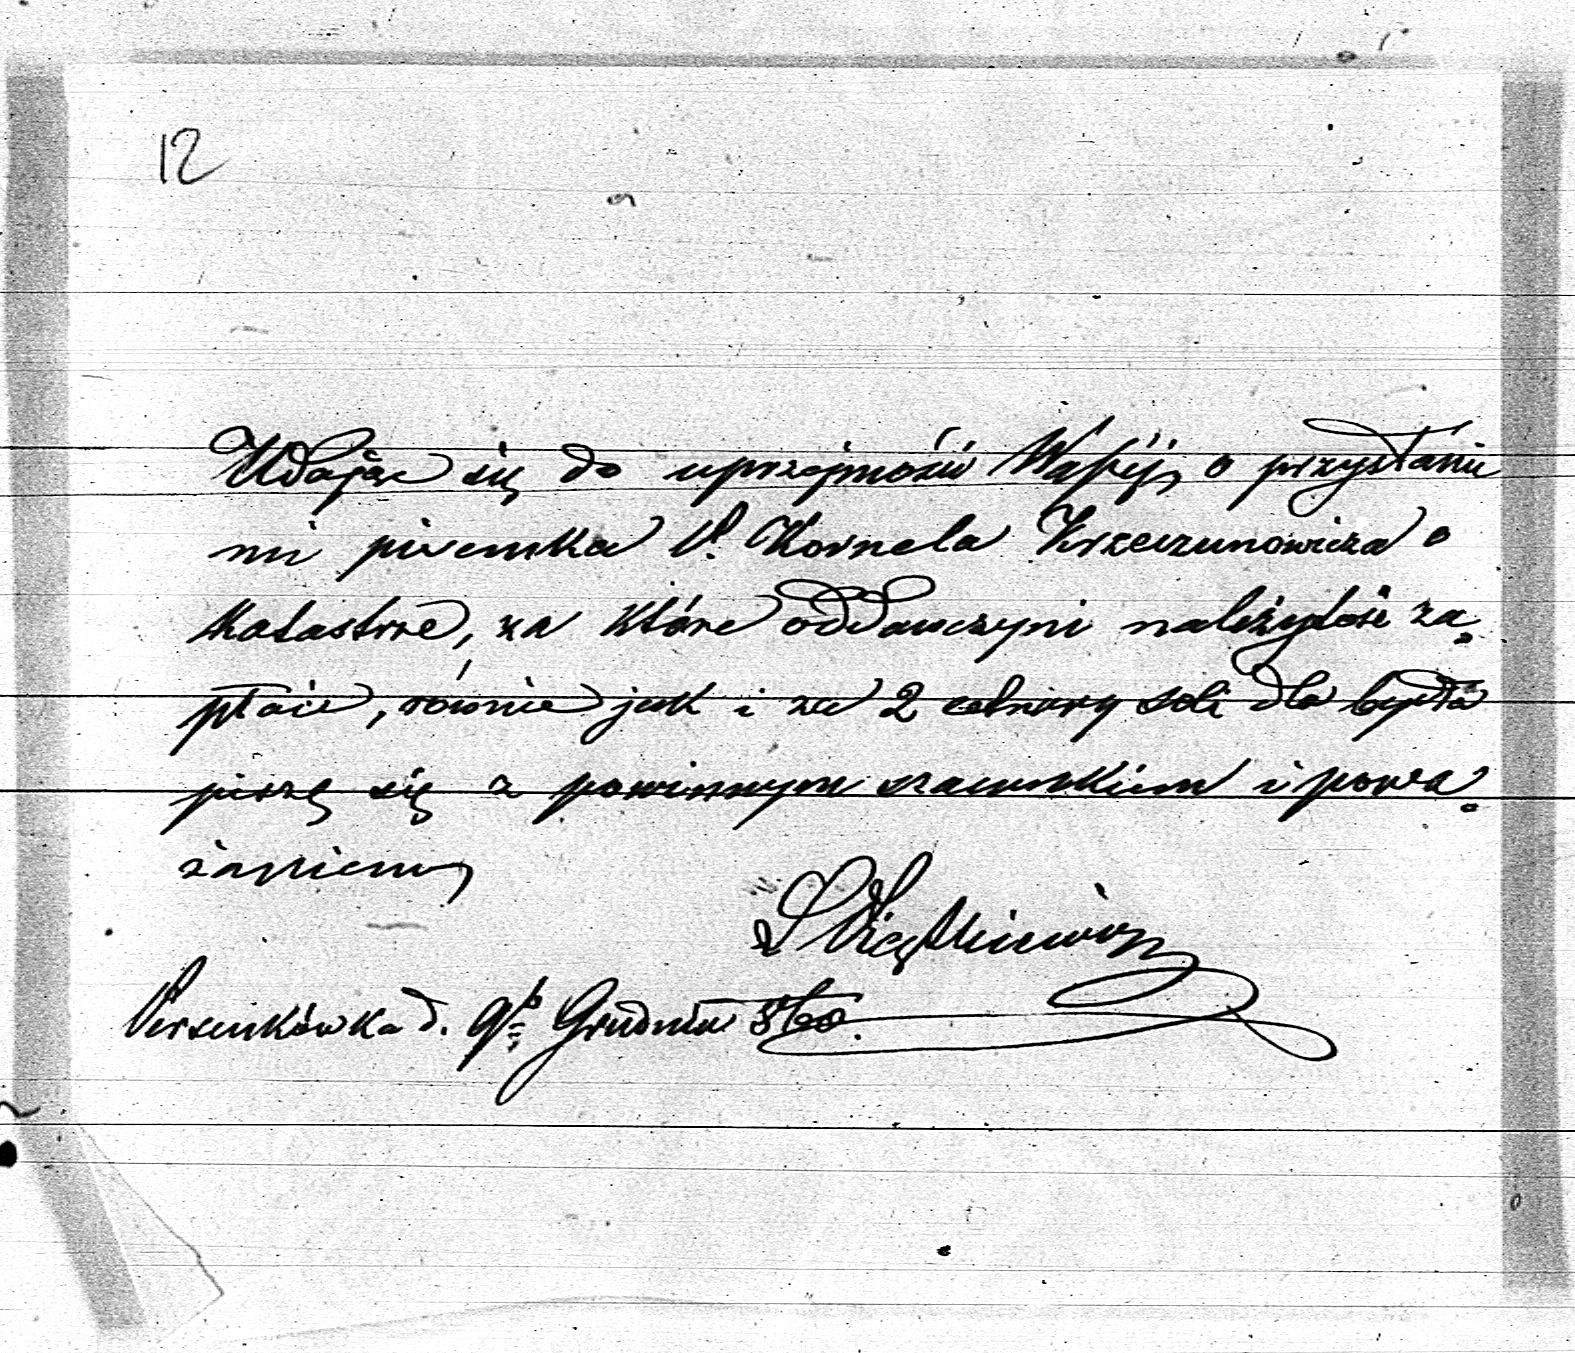 12
Udając się do uprzejmości Wapij, o przysłanie
mi pisemka P. Kornela Krzeczunowicza o
Katastrze, za które oddawczyni należytość za=
płaci, równie jak i za 2 cetnary soli dla bydła
piszę się z powinnym szacunkiem i powa=
żaniem
Persenkówka d. 9º Grudnia